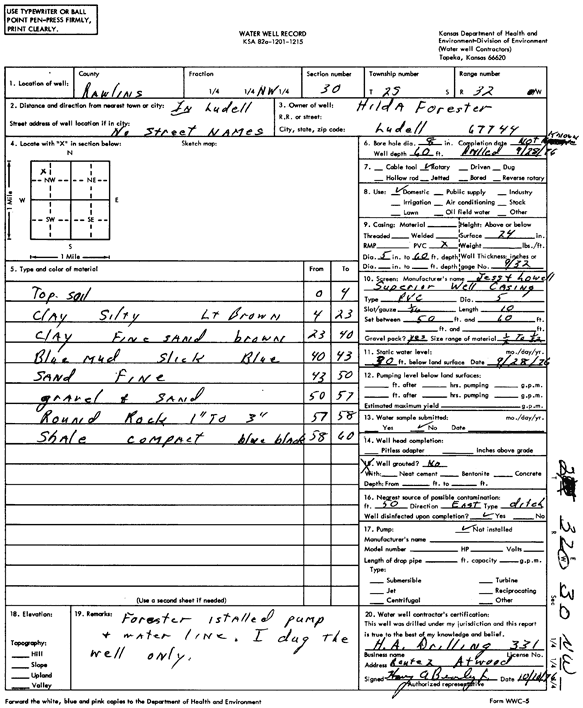 USE TYPEWRITER OR BALL
POINT PEN-PRESS FIRMLY,
PRINT CLEARLY.
WATER WELL RECORD
KSA 82a-1201-1215
Kansas Department of Health and
Environment-Division of Environment
(Water well Contractors)
Topeka, Kansas 66620
1. Location of well: County Rawlins Fraction 1/4 1/4 NW 1/4 Section number 30 Township number T 2S S Range number R 32 W
2. Distance and direction from nearest town or city: In Ludell
Street address of well location if in city: No Street NAMES
3. Owner of well: HildA Forester
R.R. or street:
City, state, zip code: Ludell 67744
4. Locate with "X" in section below: Sketch map:
N
X
NW NE
W E
SW SE
S
1 Mile
1 Mile
5. Type and color of material From To
Top soil 0 4
Clay Silty Lt Brown 4 23
Clay Fine sand brown 23 40
Blue Mud Slick Blue 40 43
SAND FINE 43 50
gravel & SAND 50 57
Round Rock 1" To 3" 57 58
Shale compact blue black 58 60
(Use a second sheet if needed)
6. Bore hole dia. 8 in. Completion date Not Known
Well depth 60 ft. Drilled 9/28/76
7. Cable tool ✓ Rotary Driven Dug
Hollow rod Jetted Bored Reverse rotary
8. Use: ✓ Domestic Public supply Industry
Irrigation Air conditioning Stock
Lawn Oil field water Other
9. Casing: Material Height: Above or below
Threaded Welded Surface 24 in.
RMP PVC X Weight lbs./ft.
Dia. 5 in. to 60 ft. depth Wall Thickness: inches or
Dia. in. to ft. depth gage No. 9/32
10. Screen: Manufacturer's name Jess & Lowell
Superior Well Casing
Type PVC Dia. 5
Slot/gauze Length 10
Set between 50 ft. and 60 ft.
ft. and ft.
Gravel pack? yes Size range of material
11. Static water level: mo./day/yr.
30 ft. below land surface Date 9/28/76
12. Pumping level below land surfaces:
ft. after hrs. pumping g.p.m.
ft. after hrs. pumping g.p.m.
Estimated maximum yield g.p.m.
13. Water sample submitted: mo./day/yr.
Yes ✓ No Date
14. Well head completion:
Pitless adapter Inches above grade
15. Well grouted? No
With: Neat cement Bentonite Concrete
Depth: From ft. to ft.
16. Nearest source of possible contamination:
ft. 50 Direction EAST Type ditch
Well disinfected upon completion? ✓ Yes No
17. Pump: ✓ Not installed
Manufacturer's name
Model number HP Volts
Length of drop pipe ft. capacity g.p.m.
Type:
Submersible Turbine
Jet Reciprocating
Centrifugal Other
18. Elevation:
Topography:
Hill
Slope
Upland
Valley
19. Remarks: Forester istalled pump
& water line. I dug the
well only.
20. Water well contractor's certification:
This well was drilled under my jurisdiction and this report
is true to the best of my knowledge and belief.
H.A. Drilling 331
Business name License No.
Address Route 2 Atwood
Signed Date 10/10/76
Authorized representative
T R Sec 1/4 1/4 1/4
32 W 30 NW
Forward the white, blue and pink copies to the Department of Health and Environment
Form WWC-5